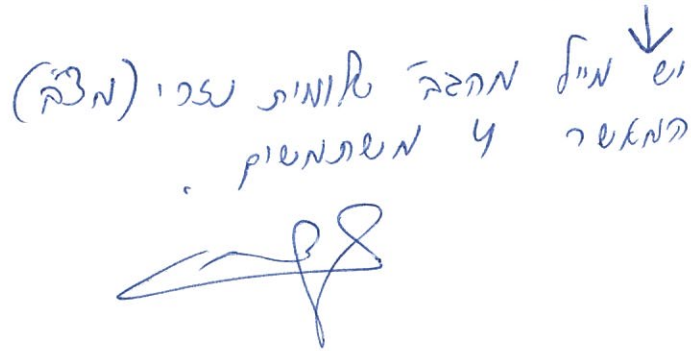 יש מייל מהגב' שלומית נצרי (מצ"ב)
המאשר 4 משתמשים.